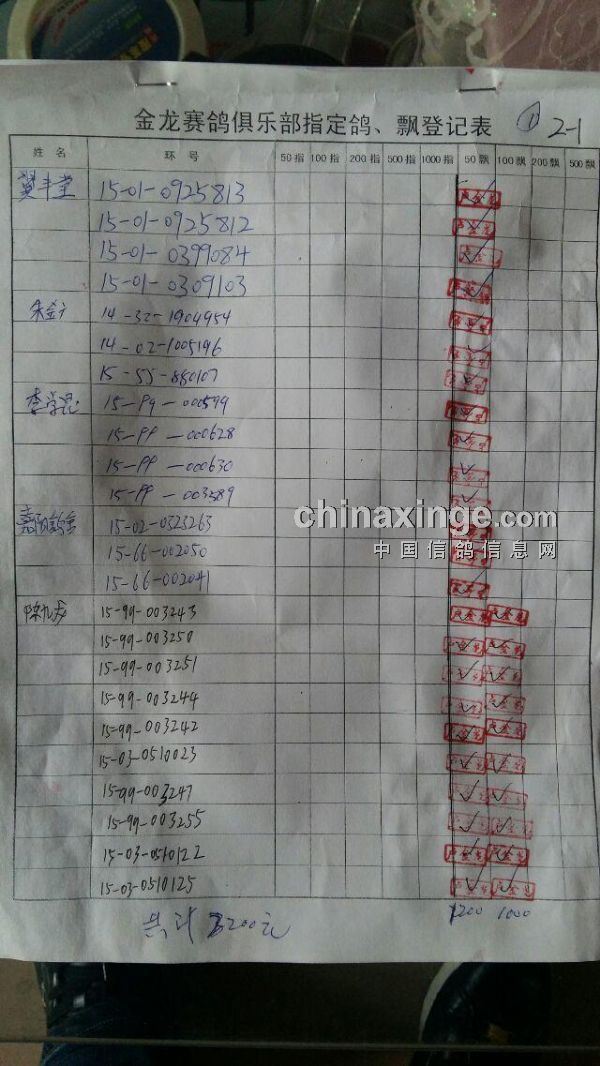 金龙赛鸽俱乐部指定鸽、飘登记表 ① 2-1
姓名 环号 50指 100指 200指 500指 1000指 50飘 100飘 200飘 500飘
冀丰堂 15-01-0925813
15-01-0925812
15-01-0399084
15-01-0309103
14-32-1904954
14-02-1005196
15-55-880107
15-99-000599
15-99-000628
15-99-000630
15-99-003589
chinaxinge.com
中国信鸽信息网
15-02-0323263
15-66-002050
15-66-002041
15-99-003243
15-99-003250
15-99-003251
15-99-003244
15-99-003242
15-03-0510023
15-99-003247
15-99-003255
15-03-0510122
15-03-0510125
共计 2200元 1200 1000